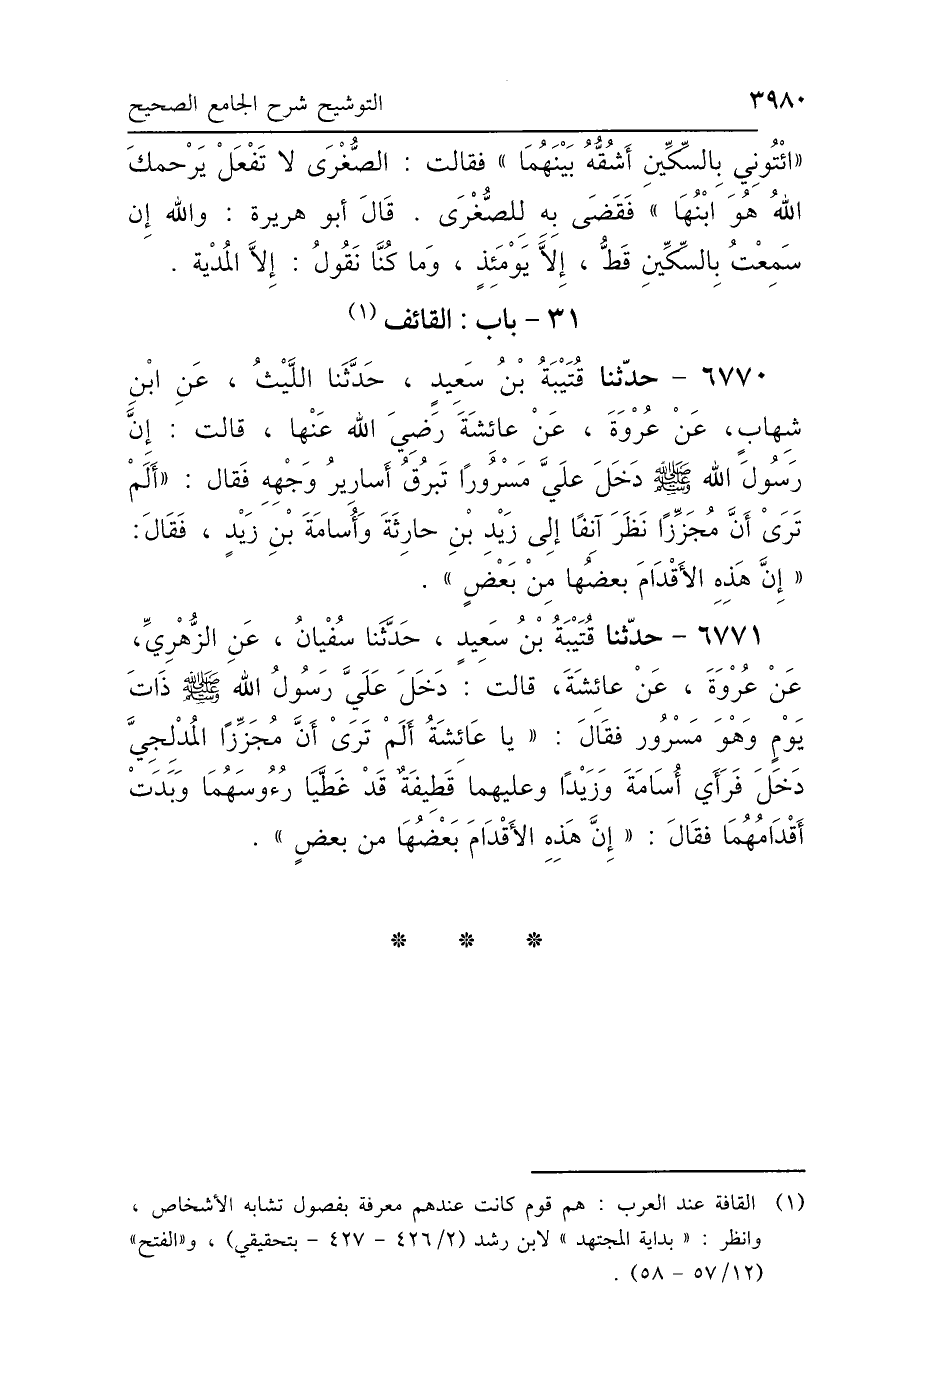 ٣٩٨٠ التوشيح شرح الجامع الصحيح
«ائْتُونِي بِالسِّكِّينِ أَشُقُّهُ بَيْنَهُمَا » فقالت : الصُّغْرَى لا تَفْعَلْ يَرْحمكَ
اللهُ هُوَ ابْنُهَا » فَقَضَى بِهِ لِلصُّغْرَى . قَالَ أبو هريرة : والله إِن
سَمِعْتُ بِالسِّكِّينِ قَطُّ ، إِلاَّ يَوْمَئِذٍ ، وَمَا كُنَّا نَقُولُ : إِلاَّ المُدْية .
٣١ – باب : القائف (١)
٦٧٧٠ – حدّثنا قُتَيْبَةُ بْنُ سَعِيدٍ ، حَدَّثَنا اللَّيْثُ ، عَنِ ابْنِ
شِهابٍ، عَنْ عُرْوَةَ ، عَنْ عائِشَةَ رَضِيَ الله عَنْها ، قالت : إِنَّ
رَسُولَ الله ﷺ دَخَلَ علَيَّ مَسْرُورًا تَبرُقُ أسارِيرُ وَجْهِهِ فَقال : «أَلَمْ
تَرَىْ أَنَّ مُجَزِّزًا نَظَرَ آنِفًا إلى زَيْدِ بْنِ حارِثَةَ وَأُسامَةَ بْنِ زَيْدٍ ، فَقَالَ:
« إِنَّ هَذِهِ الأَقْدَامَ بعضُها مِنْ بَعْضٍ » .
٦٧٧١ – حدّثنا قُتَيْبَةُ بْنُ سَعِيدٍ ، حَدَّثَنا سُفْيانُ ، عَنِ الزُّهْرِيِّ،
عَنْ عُرْوَةَ ، عَنْ عائِشَةَ، قالت : دَخَلَ علَيَّ رَسُولُ الله ﷺ ذَاتَ
يَوْمٍ وَهْوَ مَسْرُور فقَالَ : « يا عَائِشَةُ أَلَمْ تَرَىْ أَنَّ مُجَزِّزًا المُدْلِجِيَّ
دَخَلَ فَرَأَي أُسَامَةَ وَزَيْدًا وعليهما قَطِيفَةٌ قَدْ غَطَّيَا رُءُوسَهُمَا وَبَدَتْ
أَقْدَامُهُمَا فقَالَ : « إِنَّ هَذِهِ الأَقْدَامَ بَعْضُهَا من بعضٍ » .
* * *
(١) القافة عند العرب : هم قوم كانت عندهم معرفة بفصول تشابه الأشخاص ،
وانظر : « بداية المجتهد » لابن رشد (٤٢٦/٢ – ٤٢٧ – بتحقيقي) ، و«الفتح»
(٥٧/١٢ – ٥٨) .